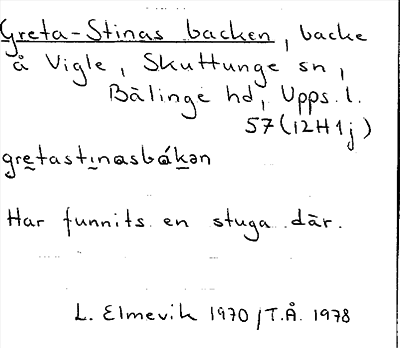 Greta-Stinas backen, backe
å Vigle, Skuttunge sn,
Bälinge hd, Upps. l.
57 (12H1j)
gretastinasbákən
Har funnits en stuga där.
L. Elmevik 1970 / T.Å. 1978